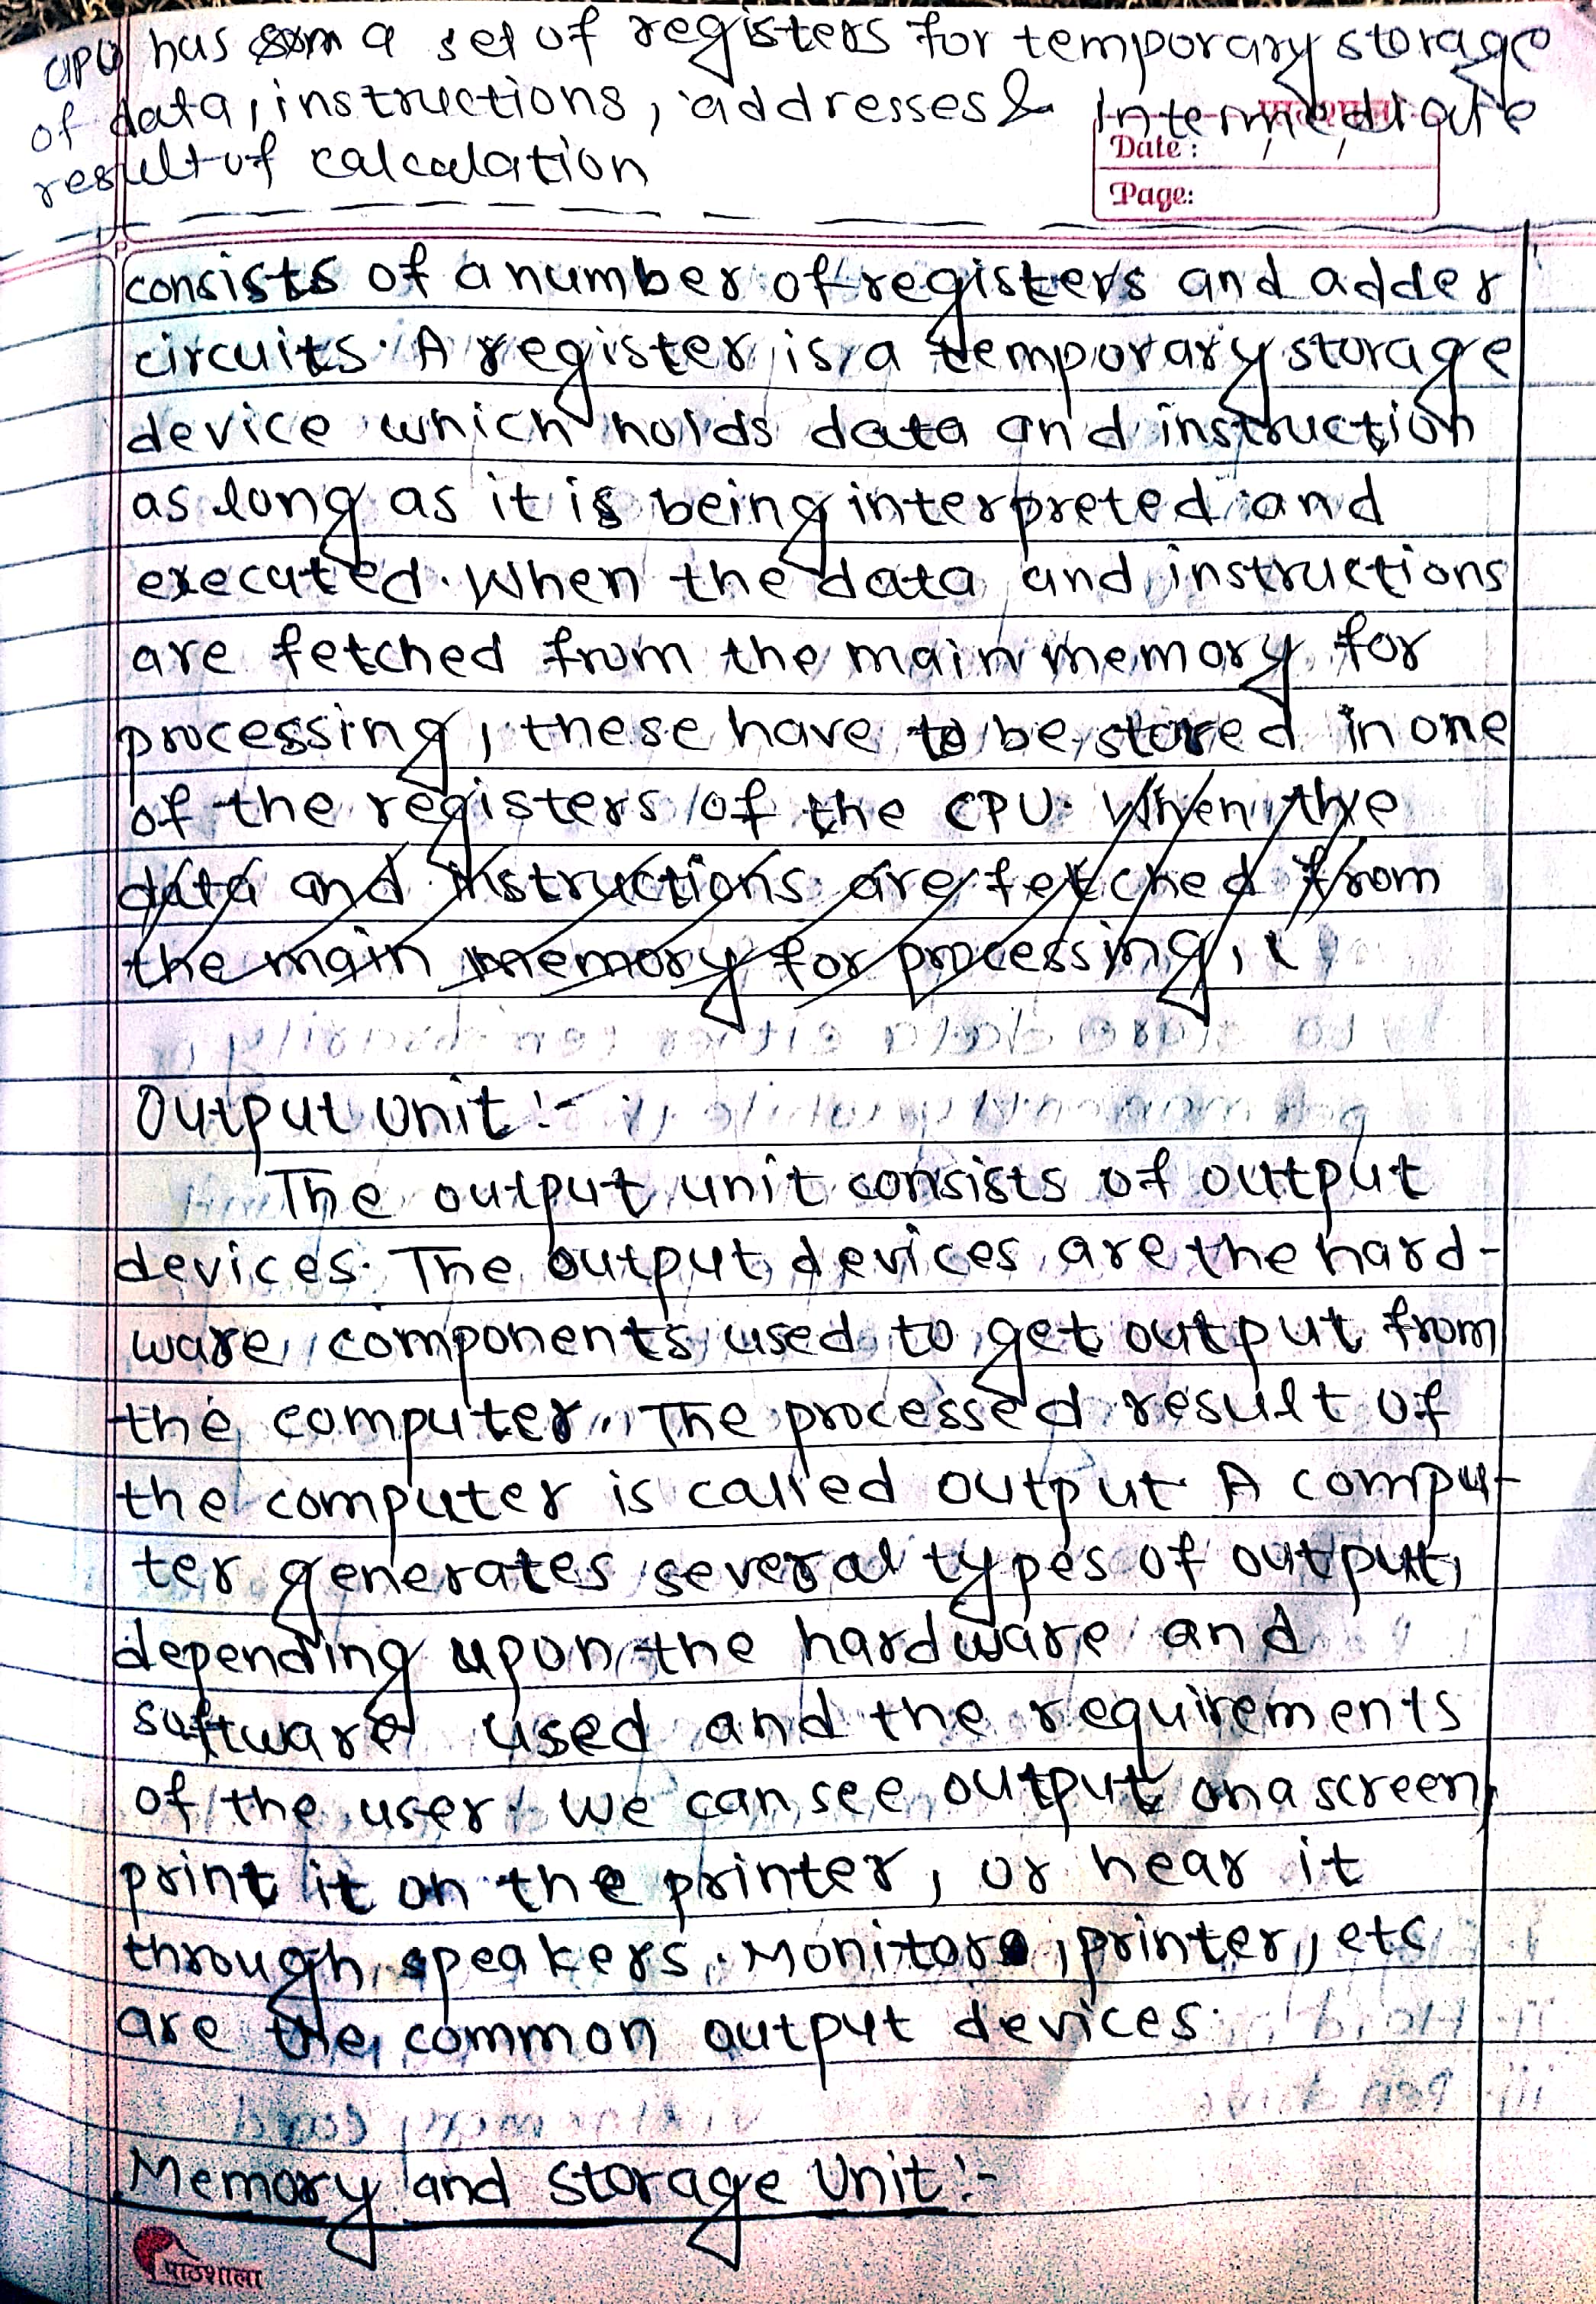 CPU has a set of registers for temporary storage
of data, instructions, addresses & Intermediate
result of calculation
Date : / /
Page:
consists of a number of registers and adder
circuits. A register is a temporary storage
device which holds data and instruction
as long as it is being interpreted and
executed. When the data and instructions
are fetched from the main memory for
processing, these have to be stored in one
of the registers of the CPU. When the
data and instructions are fetched from
the main memory for processing,
Output Unit :-
The output unit consists of output
devices. The output devices are the hard-
ware components used to get output from
the computer. The processed result of
the computer is called output. A compu-
ter generates several types of output,
depending upon the hardware and
software used and the requirements
of the user. We can see output on a screen,
print it on the printer, or hear it
through speakers. Monitors, printer, etc
are the common output devices.
Memory and Storage Unit :-
पाठशाला